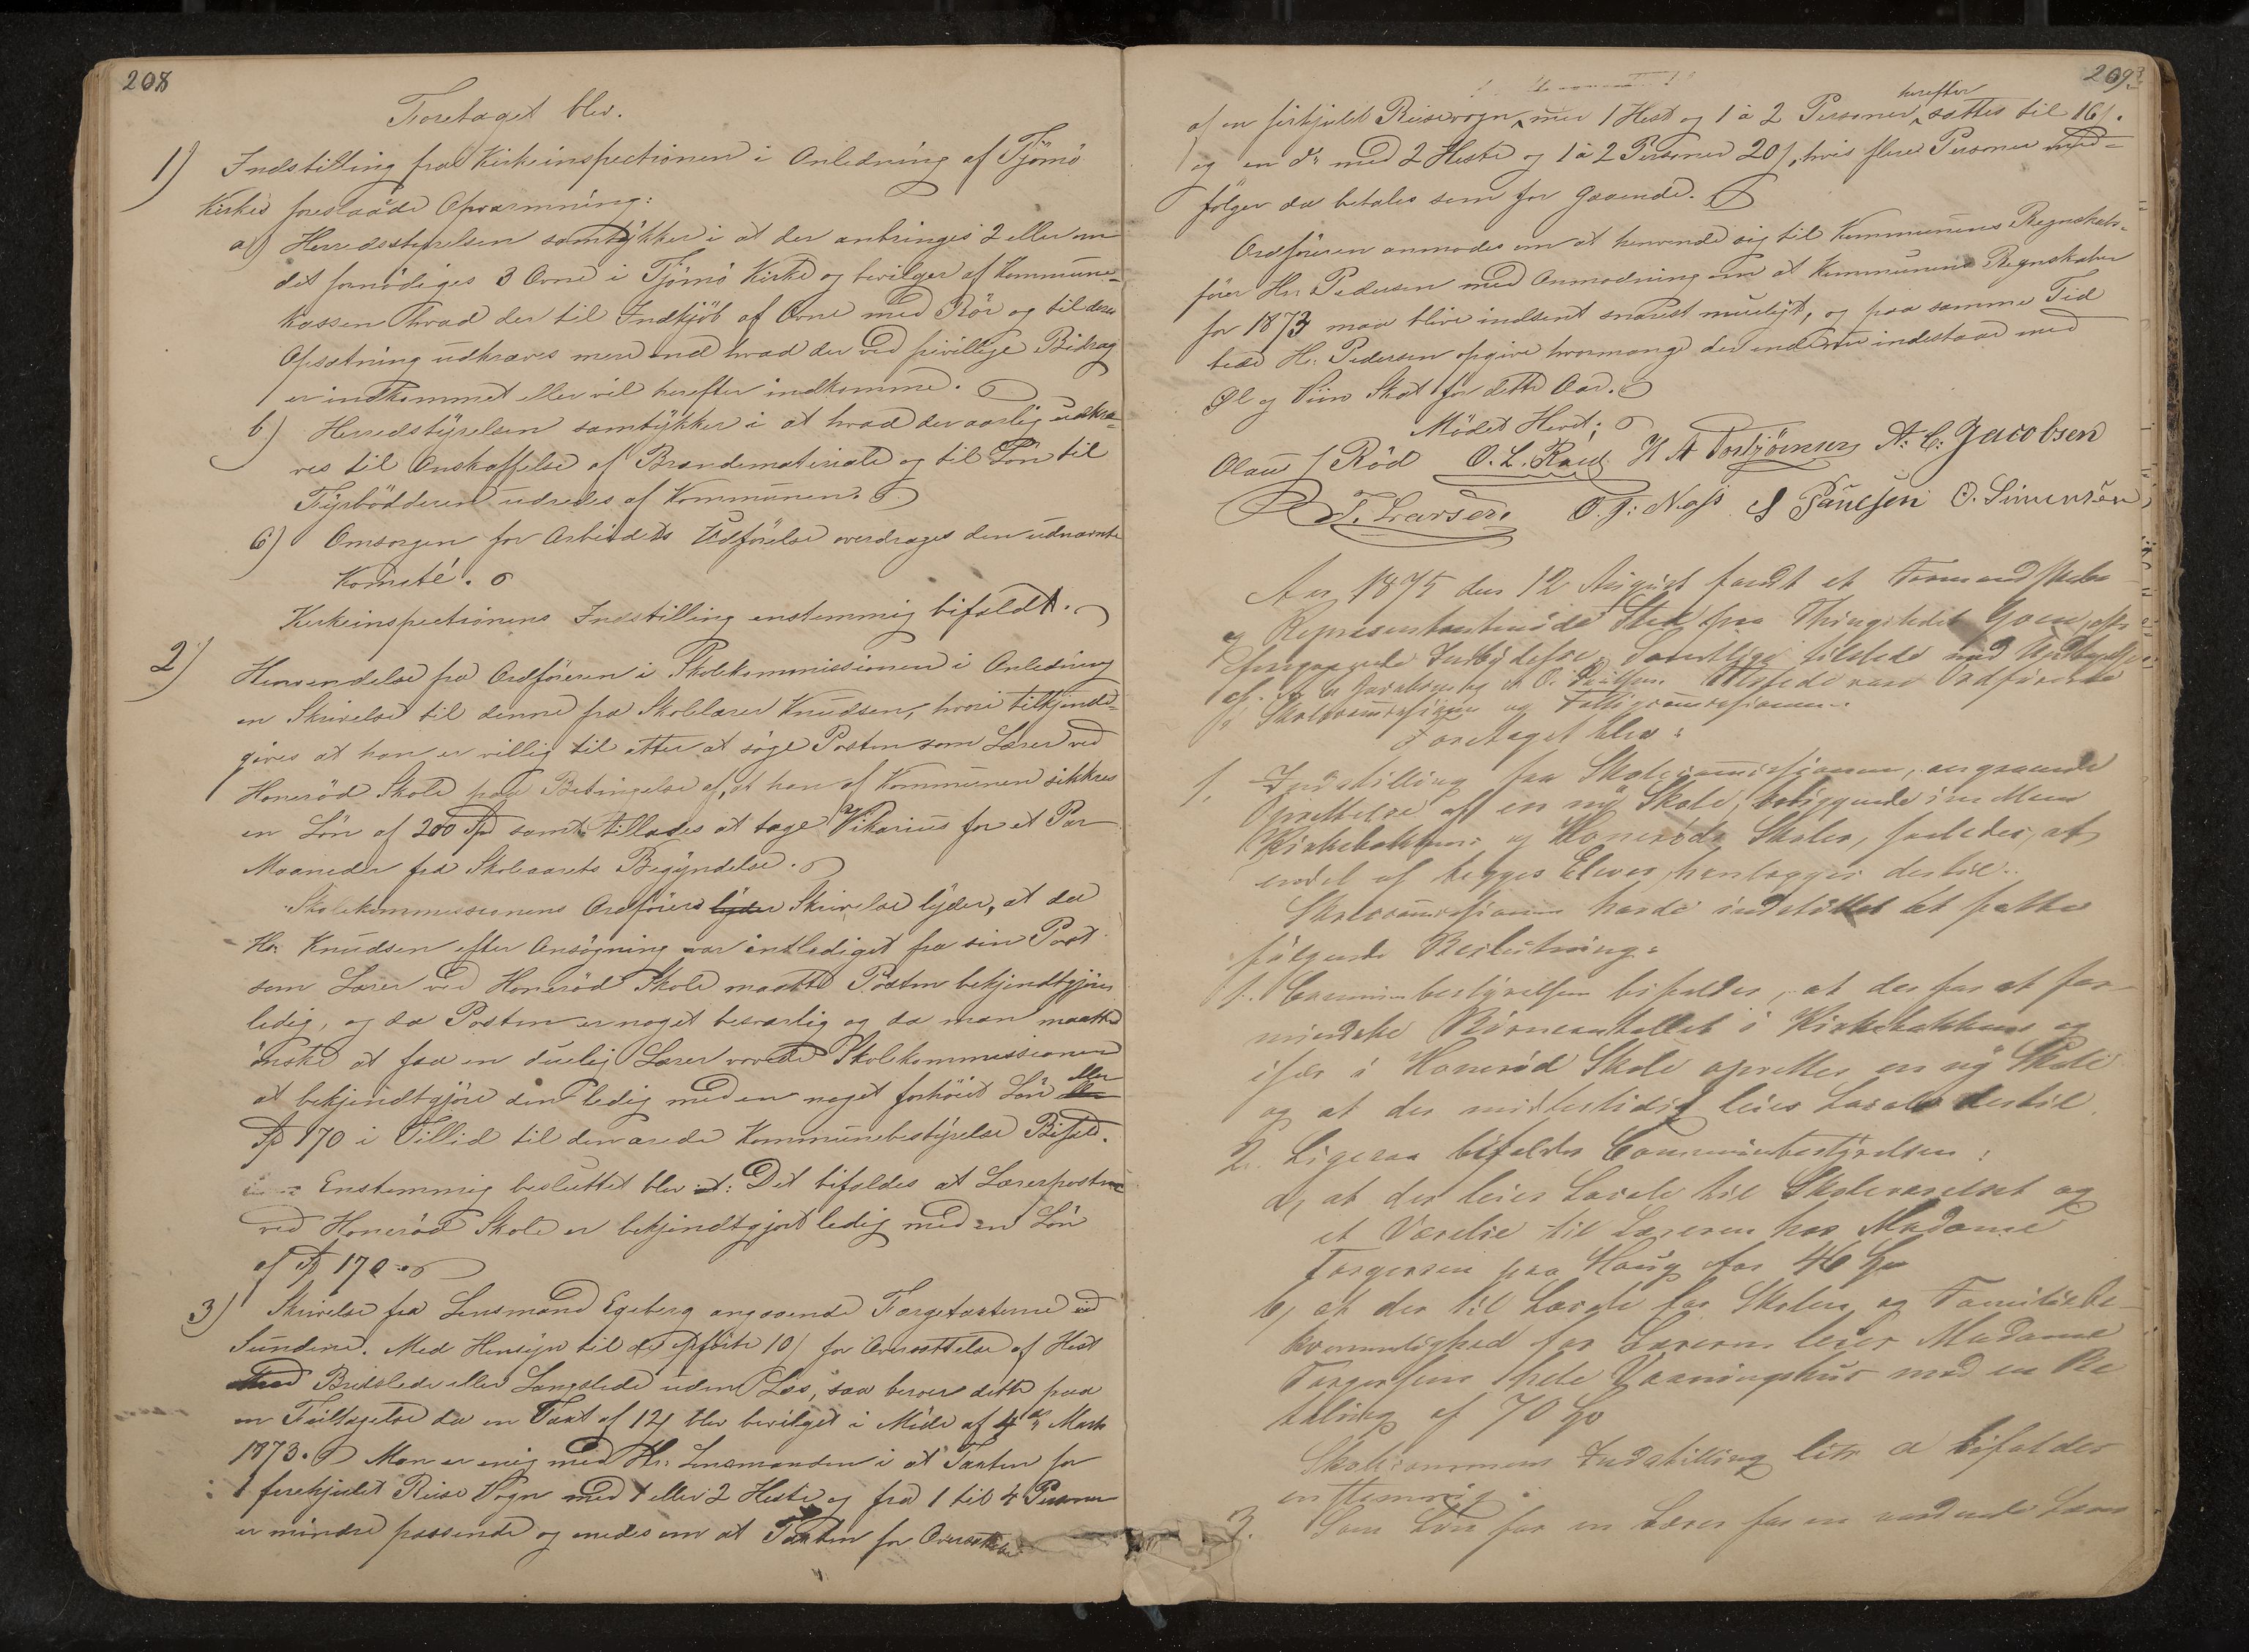 208
Foretaget blev.
1) Indstilling fra Kirkeinspectionen i Anledning af Tjömö
Kirkes foreslaaede Opvarmning:
a) Herredsstyrelsen samtykker i at der anbringes 2 eller om
det fornödiges 3 Ovne i Tjömö Kirke og bevilger af Kommune-
kassen hvad der til Indkjöb af Ovne med Rör og til deres
Opsætning udkræves mere end hvad der ved frivillige Bidrag
er indkommet eller vil herefter indkomme.
b) Herredstyrelsen samtykker i at hvad der aarlig udkræ-
ves til Anskaffelse af Brændemateriale og til Lön til
Fyrbödderen udredes af Kommunen.
c) Omsorgen for Arbeidets Udförelse overdrages den udnævnte
Komité.
Kirkeinspectionens Indstilling enstemmig bifaldt.
2) Henvendelse fra Ordföreren i Skolekommissionen i Anledning
en Skrivelse til denne fra Skolelærer Knudsen, hvori tilkjende-
gives at han er villig til atter at söge Posten som Lærer ved
Honeröd Skole paa Betingelse af, at han af Kommunen sikkres
en Lön af 200 Spd samt tillades at tage Vikarius for et Par
Maaneder fra Skoleaarets Begyndelse.
Skolekommissionens Ordförers lyder Skrivelse lyder, at da
Hr. Knudsen efter Ansögning var entlediget fra sin Post
som Lærer ved Honeröd Skole maatte Posten bekjendtgjöres
ledig, og da Posten er noget besværlig og da man maatte
önske at faa en duelig Lærer vovede Skolekommissionen
at bekjendtgjöre den ledig med en noget forhöiet Lön eller
Spd 170 i Tillid til den ærede Kommunebestyrelse Bifald.
Enstemmig besluttet blev: Det bifaldes at Lærerposten
ved Honeröd Skole er bekjendtgjort ledig med en Lön
af Spd 170
3) Skrivelse fra Lensmand Egeberg angaaende Færgetaxterne ved
Sundene. Med Hensyn til de opförte 10 / for Oversættelse af Hest
med Bredslede eller Langslede uden Læs, saa beroer dette paa
en Feiltagelse da en Taxt af 12 / blev bevilget i Möde af 4de Marts
1873. Man er enig med Hr. Lensmanden i at Taxten for
1 firehjulet Reise Vogn med 1 eller 2 Heste og fra 1 til 4 Personer
er mindre passende og enedes om at Taxten for Oversættelse
209
af en firhjulet Reisevogn med 1 Hest og 1 à 2 Personer herefter sættes til 16 /.
og en do med 2 Heste og 1 à 2 Personer 20 /, hvis flere Personer med-
fölger da betales som for gaaende.
Ordföreren anmodes om at henvende sig til Kommunens Regnskabs-
förer Hr. Pedersen med Anmodning om at Kommunens Regnskaber
for 1873 maa blive indsent snarest mueligt, og paa samme Tid
bede Hr. Pedersen opgive hvormange der endnu indestaar med
Öl og Viin Skat for dette Aar.
Mödet Hevet;
Olaus J Röd O. L. Röed H A Torbjörnsen A. C. Jacobsen
T. Larsen O. J. Næss S Paulsen O. Simensen
Aar 1875 den 12 August holdt et Formandskabs
og Repræsentantmöde Sted paa Thingstedet Goen, efter
foregaaende Indbydelse. Samtlige tilstede med Undtagelse
af A. C. Jacobsen og O. Paulsen. Tilstede vare Ordförerne
i Skolecomissionen og Fattigcomissionen.
Foretaget blev:
1. Indstilling fra Skolecomissionen, angaaende
Oprettelse af en ny Skole, beliggende imellem
Kirkebakkens og Honeröds Skoler, saaledes, at
endel af begges Elever henlægges dertil.
Skolecomissionen havde indstillet at fatte
fölgende Beslutning:
1. Communebestyrelsen bifalder, at der for at for-
mindske Börneantallet i Kirkebakkens og
især i Honeröd Skole oprettes en ny Skole
og at der midlertidig leies Locale dertil.
2. Ligesaa bifalder Communebestyrelsen:
a, at der leies Locale til Skoleværelset og
et Værelse til Læreren hos Madame
Torgersen paa Haug for 46 Spd
b, at der til Locale for Skolen og Familiebe-
kvemmelighed for Læreren leies Madame
Torgersens hele Vaaningshus med en Be
taling af 70 Spd
Skolecommens Indstilling litr a bifaldes
enstemmig.
3. Som Lön for en Lærer for en